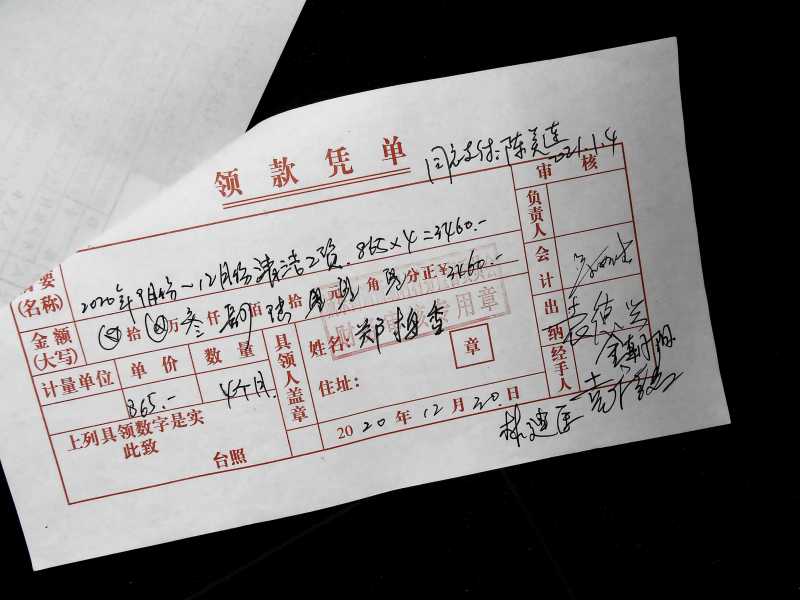 领款凭单
同意支付:陈美连
2021.1.4
审核
摘要
(名称)
2020年9月份~12月份清洁工资.865×4=3460.-
负责人
金额
(大写)
拾 万叁仟肆佰陆拾零元零角零分正¥3460.-
会计
计量单位 单价 数量
865.- 4个月
具领人盖章
姓名:郑梅香
章
住址:
出纳
经手人
上列具领数字是实
此致
台照
2020年12月30日
林迪
财 专用章